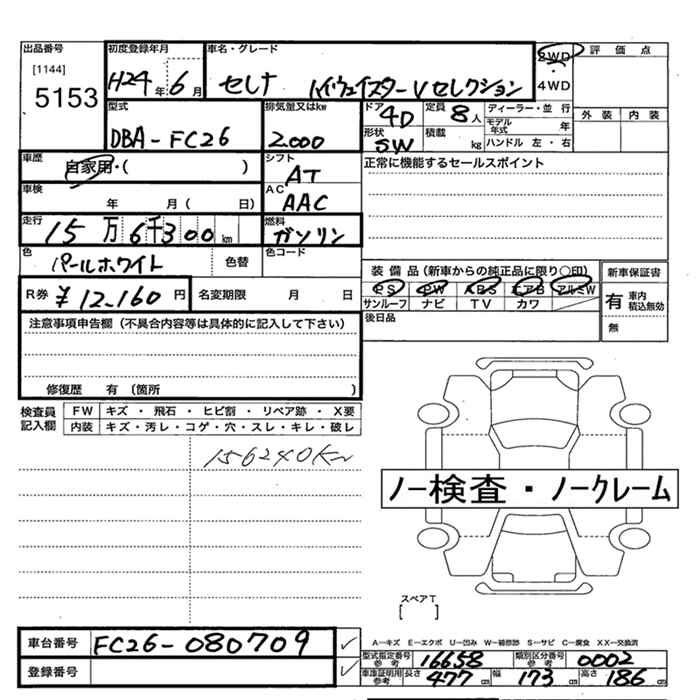 出品番号 初度登録年月 車名・グレード 2WD 評価点
[1144] 5153 H24年 6月 セレナ ハイウェイスターVセレクション ・ 4WD
型式 排気量又はkw ドア 4D 定員 8人 ディーラー・並行 外装 内装
DBA-FC26 2000 形状 SW 積載 kg モデル年式 年
ハンドル 左・右
車歴 自家用・( ) シフト AT 正常に機能するセールスポイント
車検 年 月( 日) AC AAC
走行 15万6千300km 燃料 ガソリン
色 パールホワイト 色替 色コード
装備品(新車からの純正品に限り○印) 新車保証書
R券 ¥12,160円 名変期限 月 日 PS PW ABS エアB アルミW 有 車内積込無効
サンルーフ ナビ TV カワ
注意事項申告欄(不具合内容等は具体的に記入して下さい) 後日品 無
修復歴 有 (箇所 )
検査員記入欄 FW キズ・飛石・ヒビ割・リペア跡・X要
内装 キズ・汚レ・コゲ・穴・スレ・キレ・破レ
156240km
ノー検査・ノークレーム
スペアT
[ ]
車台番号 FC26-080709 A-キズ E-エクボ U-凹み W-補修跡 S-サビ C-腐食 XX-交換済
型式指定番号参考 16658 類別区分番号参考 0002
登録番号 車庫証明用参考 長さ 477cm 幅 173cm 高さ 186cm